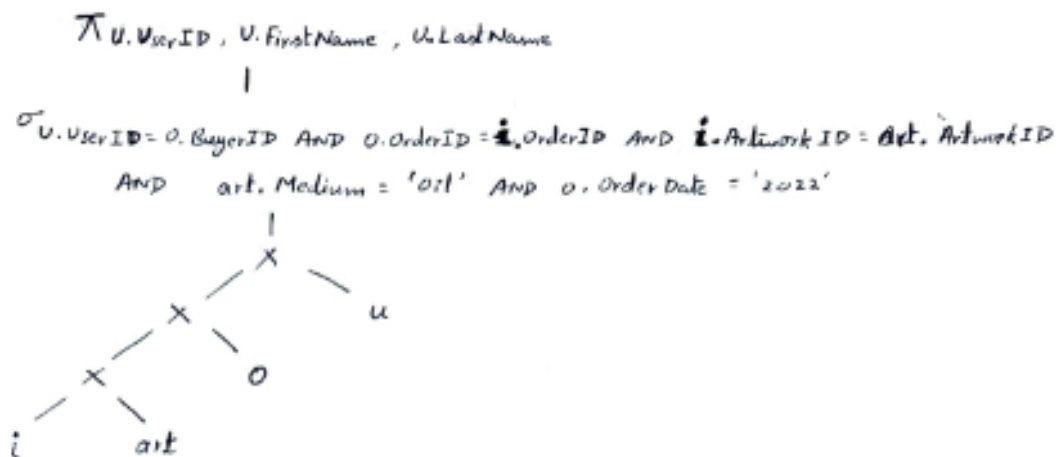 π U.UserID, U.FirstName, U.LastName
σ U.UserID = O.BuyerID AND O.OrderID = i.OrderID AND i.ArtworkID = Art.ArtworkID
AND art.Medium = 'Oil' AND O.OrderDate = '2022'
X
X u
X O
i art